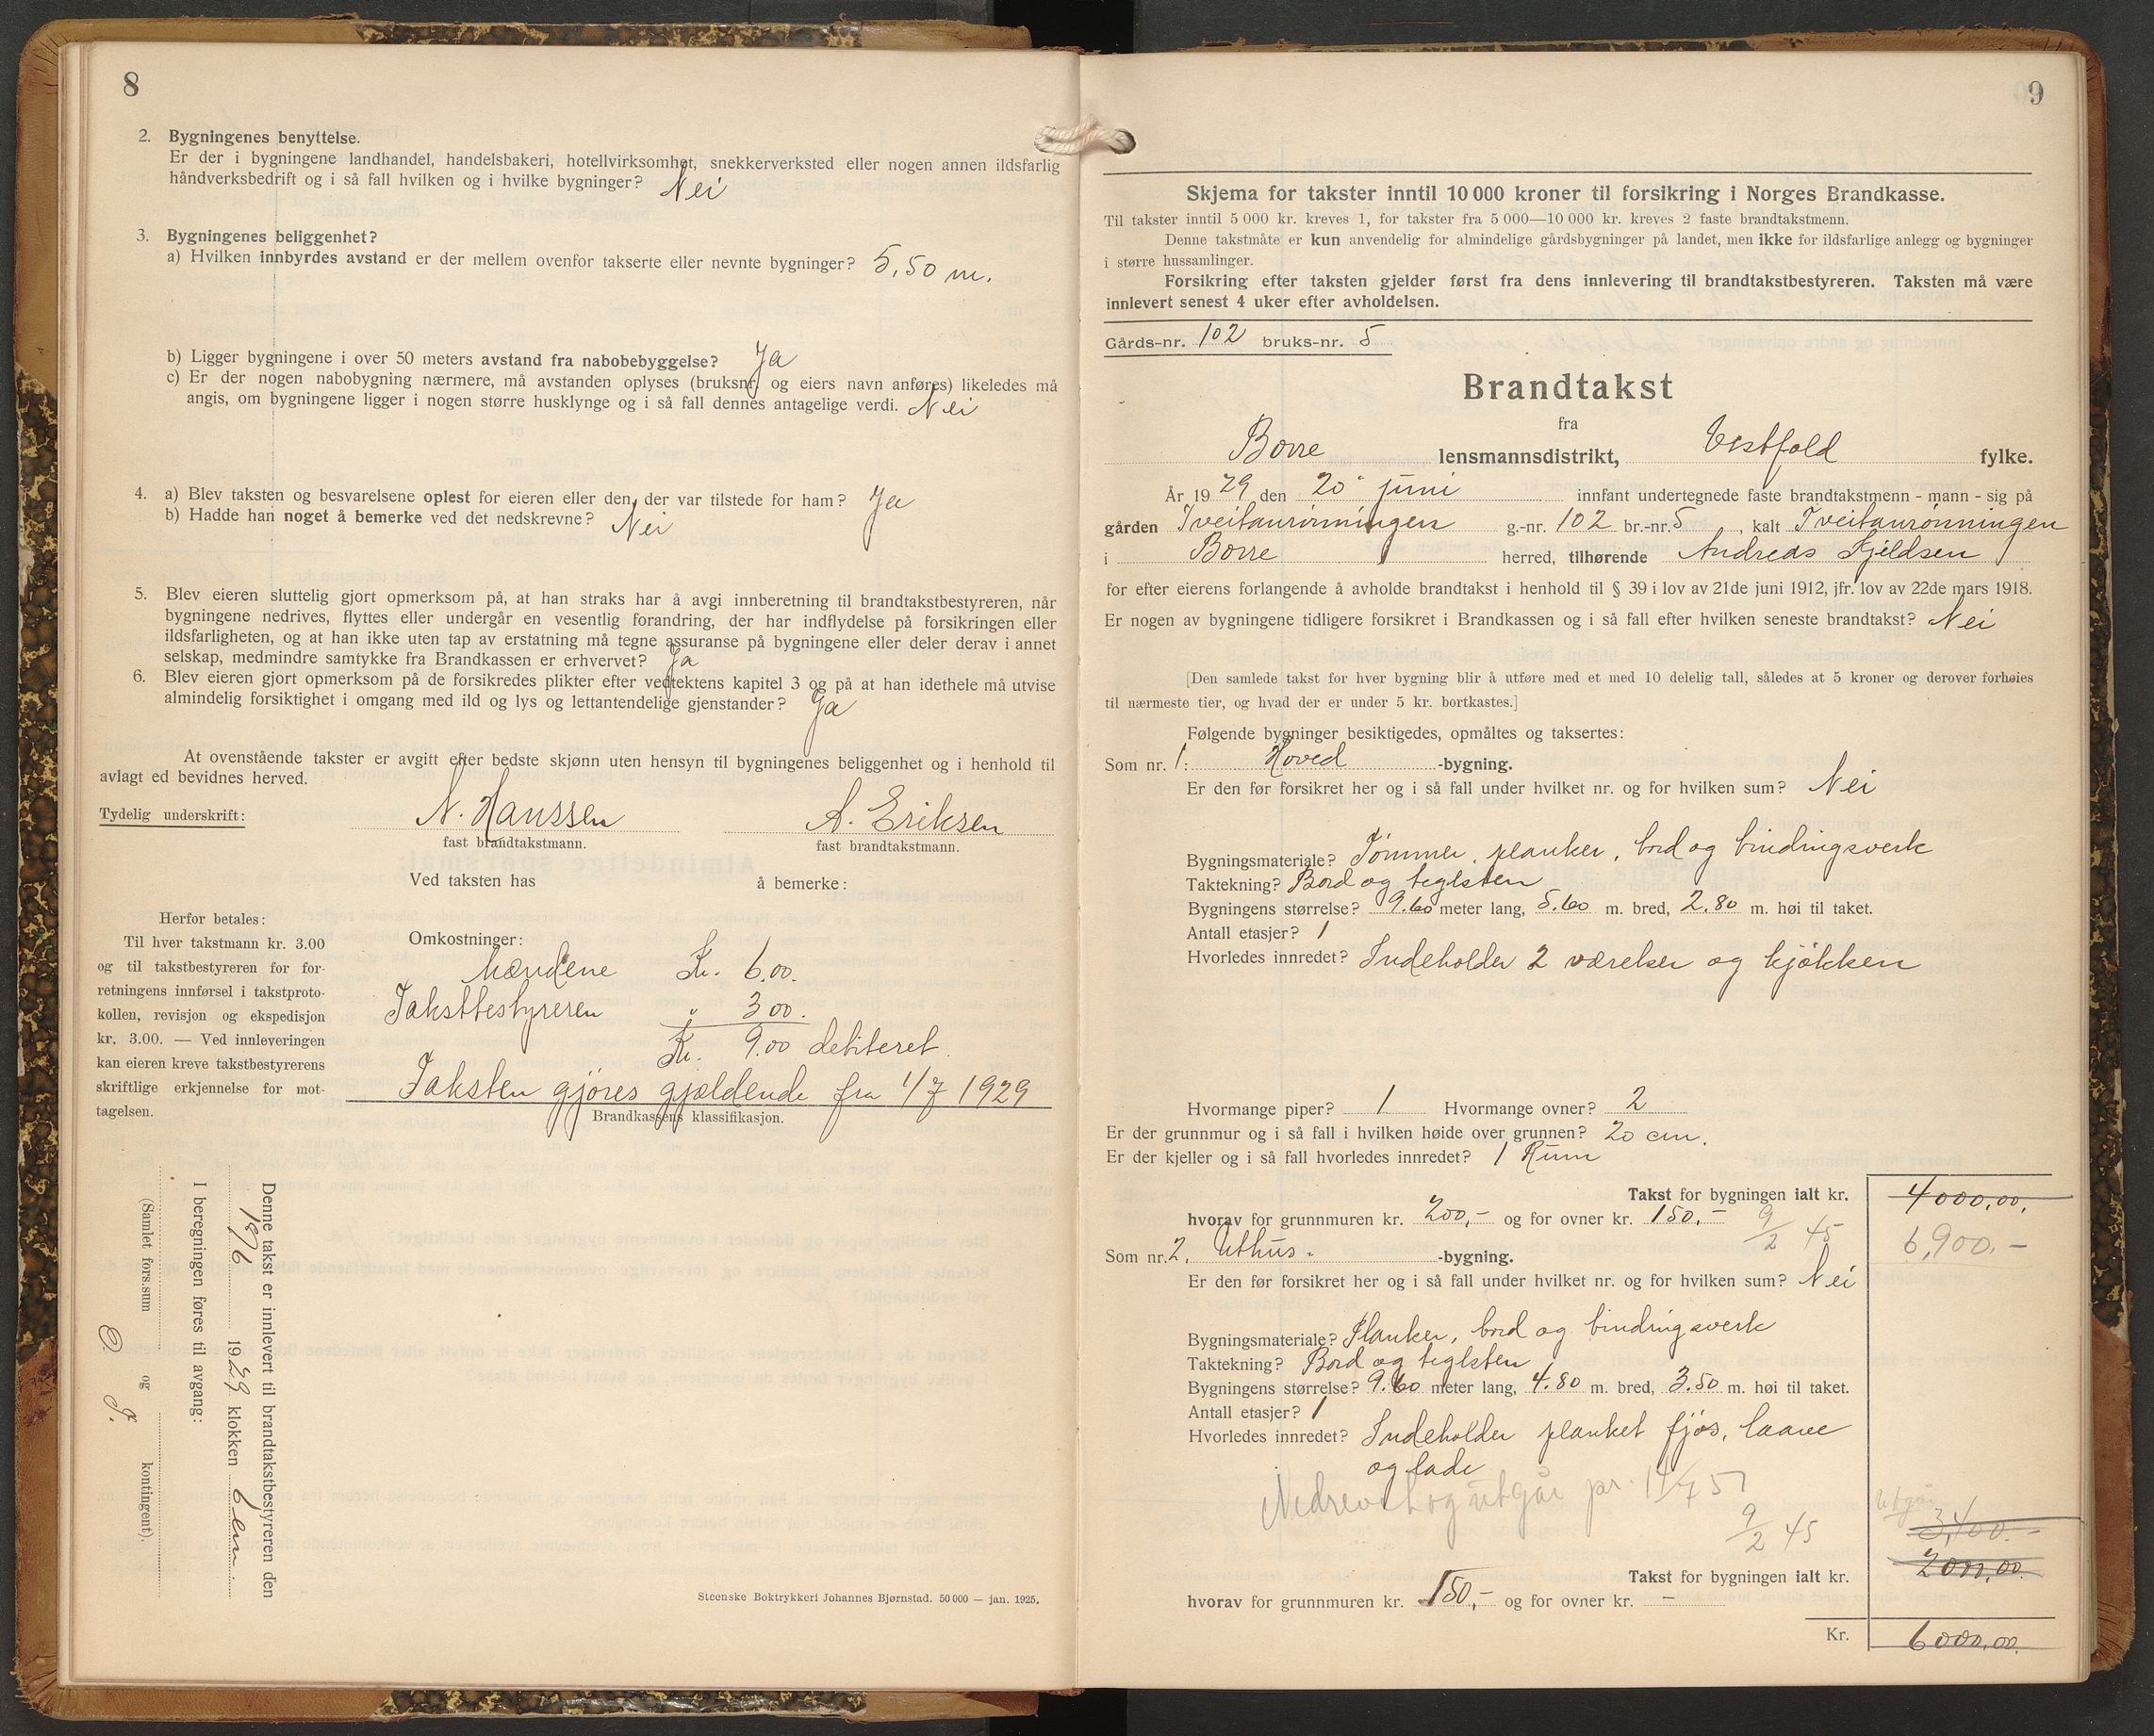 8
2. Bygningenes benyttelse.
Er der i bygningene landhandel, handelsbakeri, hotellvirksomhet, snekkerverksted eller nogen annen ildsfarlig
håndverksbedrift og i så fall hvilken og i hvilke bygninger? Nei
3. Bygningenes beliggenhet?
a) Hvilken innbyrdes avstand er der mellem ovenfor takserte eller nevnte bygninger? 5,50 m.
b) Ligger bygningene i over 50 meters avstand fra nabobebyggelse? Ja
c) Er der nogen nabobygning nærmere, må avstanden oplyses (bruksnr. og eiers navn anføres) likeledes må
angis, om bygningene ligger i nogen større husklynge og i så fall dennes antagelige verdi. Nei
4. a) Blev taksten og besvarelsene oplest for eieren eller den, der var tilstede for ham? Ja
b) Hadde han noget å bemerke ved det nedskrevne? Nei
5. Blev eieren sluttelig gjort opmerksom på, at han straks har å avgi innberetning til brandtakstbestyreren, når
bygningene nedrives, flyttes eller undergår en vesentlig forandring, der har indflydelse på forsikringen eller
ildsfarligheten, og at han ikke uten tap av erstatning må tegne assuranse på bygningene eller deler derav i annet
selskap, medmindre samtykke fra Brandkassen er erhvervet? Ja
6. Blev eieren gjort opmerksom på de forsikredes plikter efter vedtektens kapitel 3 og på at han idethele må utvise
almindelig forsiktighet i omgang med ild og lys og lettantendelige gjenstander? Ja
At ovenstående takster er avgitt efter bedste skjønn uten hensyn til bygningenes beliggenhet og i henhold til
avlagt ed bevidnes herved.
Tydelig underskrift: N. Hanssen A. Eriksen
fast brandtakstmann. fast brandtakstmann.
Ved taksten has å bemerke:
Herfor betales:
Til hver takstmann kr. 3.00
og til takstbestyreren for for-
retningens innførsel i takstproto-
kollen, revisjon og ekspedisjon
kr. 3.00. — Ved innleveringen
kan eieren kreve takstbestyrerens
skriftlige erkjennelse for mot-
tagelsen.
Omkostninger:
Mændene Kr. 6.00.
Takstbestyreren " 3 00.
Kr. 9.00 debiteret.
Taksten gjøres gjældende fra 1/7 1929
Brandkassens klassifikasjon.
Denne takst er innlevert til brandtakstbestyreren den
18/6 1929 klokken 6 em.
I beregningen føres til avgang:
(Samlet fors.sum og kontingent).
Steenske Boktrykkeri Johannes Bjørnstad. 50 000 — jan. 1925.
9
Skjema for takster inntil 10 000 kroner til forsikring i Norges Brandkasse.
Til takster inntil 5 000 kr. kreves 1, for takster fra 5 000—10 000 kr. kreves 2 faste brandtakstmenn.
Denne takstmåte er kun anvendelig for almindelige gårdsbygninger på landet, men ikke for ildsfarlige anlegg og bygninger
i større hussamlinger.
Forsikring efter taksten gjelder først fra dens innlevering til brandtakstbestyreren. Taksten må være
innlevert senest 4 uker efter avholdelsen.
Gårds-nr. 102 bruks-nr. 5
Brandtakst
fra
Borre lensmannsdistrikt, Vestfold fylke.
År 1929 den 20 juni innfant undertegnede faste brandtakstmenn - mann - sig på
gården Tveitanrønningen g.-nr. 102 br.-nr. 5, kalt Tveitanrønningen
i Borre herred, tilhørende Andreas Kjeldsen
for efter eierens forlangende å avholde brandtakst i henhold til § 39 i lov av 21de juni 1912, jfr. lov av 22de mars 1918.
Er nogen av bygningene tidligere forsikret i Brandkassen og i så fall efter hvilken seneste brandtakst? Nei
[Den samlede takst for hver bygning blir å utføre med et med 10 delelig tall, således at 5 kroner og derover forhøies
til nærmeste tier, og hvad der er under 5 kr. bortkastes.]
Følgende bygninger besiktigedes, opmåltes og taksertes:
Som nr. 1: Hoved -bygning.
Er den før forsikret her og i så fall under hvilket nr. og for hvilken sum? Nei
Bygningsmateriale? Tømmer, planker, bord og bindingsverk
Taktekning? Bord og teglsten
Bygningens størrelse? 9.60 meter lang, 5.60 m. bred, 2.80 m. høi til taket.
Antall etasjer? 1
Hvorledes innredet? Indeholder 2 værelser og kjøkken
Hvormange piper? 1 Hvormange ovner? 2
Er der grunnmur og i så fall i hvilken høide over grunnen? 20 cm.
Er der kjeller og i så fall hvorledes innredet? 1 Rum
Takst for bygningen ialt kr. 4000,00.
hvorav for grunnmuren kr. 200,- og for ovner kr. 150.- 9/2 45 6,900.-
Som nr. 2. Uthus. -bygning.
Er den før forsikret her og i så fall under hvilket nr. og for hvilken sum? Nei
Bygningsmateriale? Planker, bord og bindingsverk
Taktekning? Bord og teglsten
Bygningens størrelse? 9.60 meter lang, 4.80 m. bred, 3.50 m. høi til taket.
Antall etasjer? 1
Hvorledes innredet? Indeholder planket fjøs, laave
og lade
Nedrevet og utgår pr. 1/7 57 Utgår
9/2 45 3,400.-
Takst for bygningen ialt kr. 2000,00.
hvorav for grunnmuren kr. 150,- og for ovner kr. -
Kr. 6000,00.